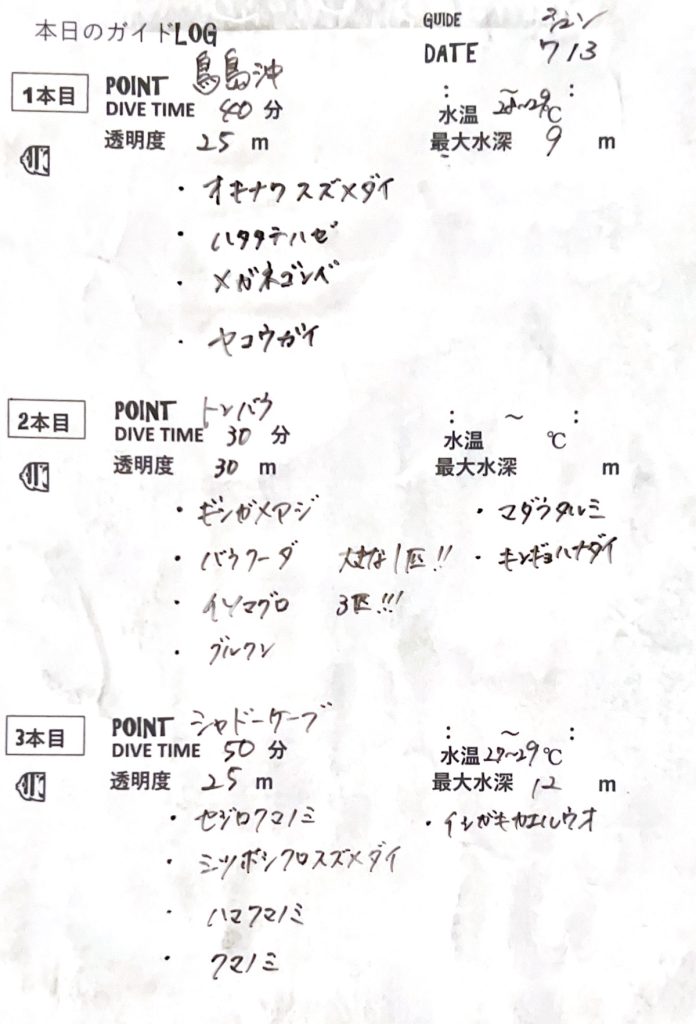 本日のガイドLOG
GUIDE シュン
DATE 7/13
1本目
POINT 鳥島沖
DIVE TIME 40 分
: ~ :
水温 28~29℃
透明度 25 m
最大水深 9 m
・オキナワスズメダイ
・ハタタテハゼ
・メガネゴンベ
・ヤコウガイ
2本目
POINT トンバラ
DIVE TIME 30 分
: ~ :
水温 ℃
透明度 30 m
最大水深 m
・ギンガメアジ
・マダラタルミ
・バラクーダ 大きな1匹!!
・キンギョハナダイ
・イソマグロ 3匹!!!
・グルクン
3本目
POINT シャドーケーブ
DIVE TIME 50 分
: ~ :
水温 27~29℃
透明度 25 m
最大水深 12 m
・セジロクマノミ
・イシガキカエルウオ
・ミツボシクロスズメダイ
・ハマクマノミ
・クマノミ